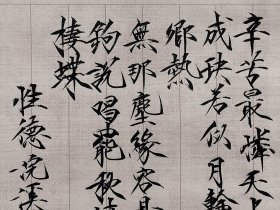 辛苦最憐天上
成玦若似月輪
卿熱
無那塵緣容易
鈎說唱罷秋
棲蝶
性德浣溪